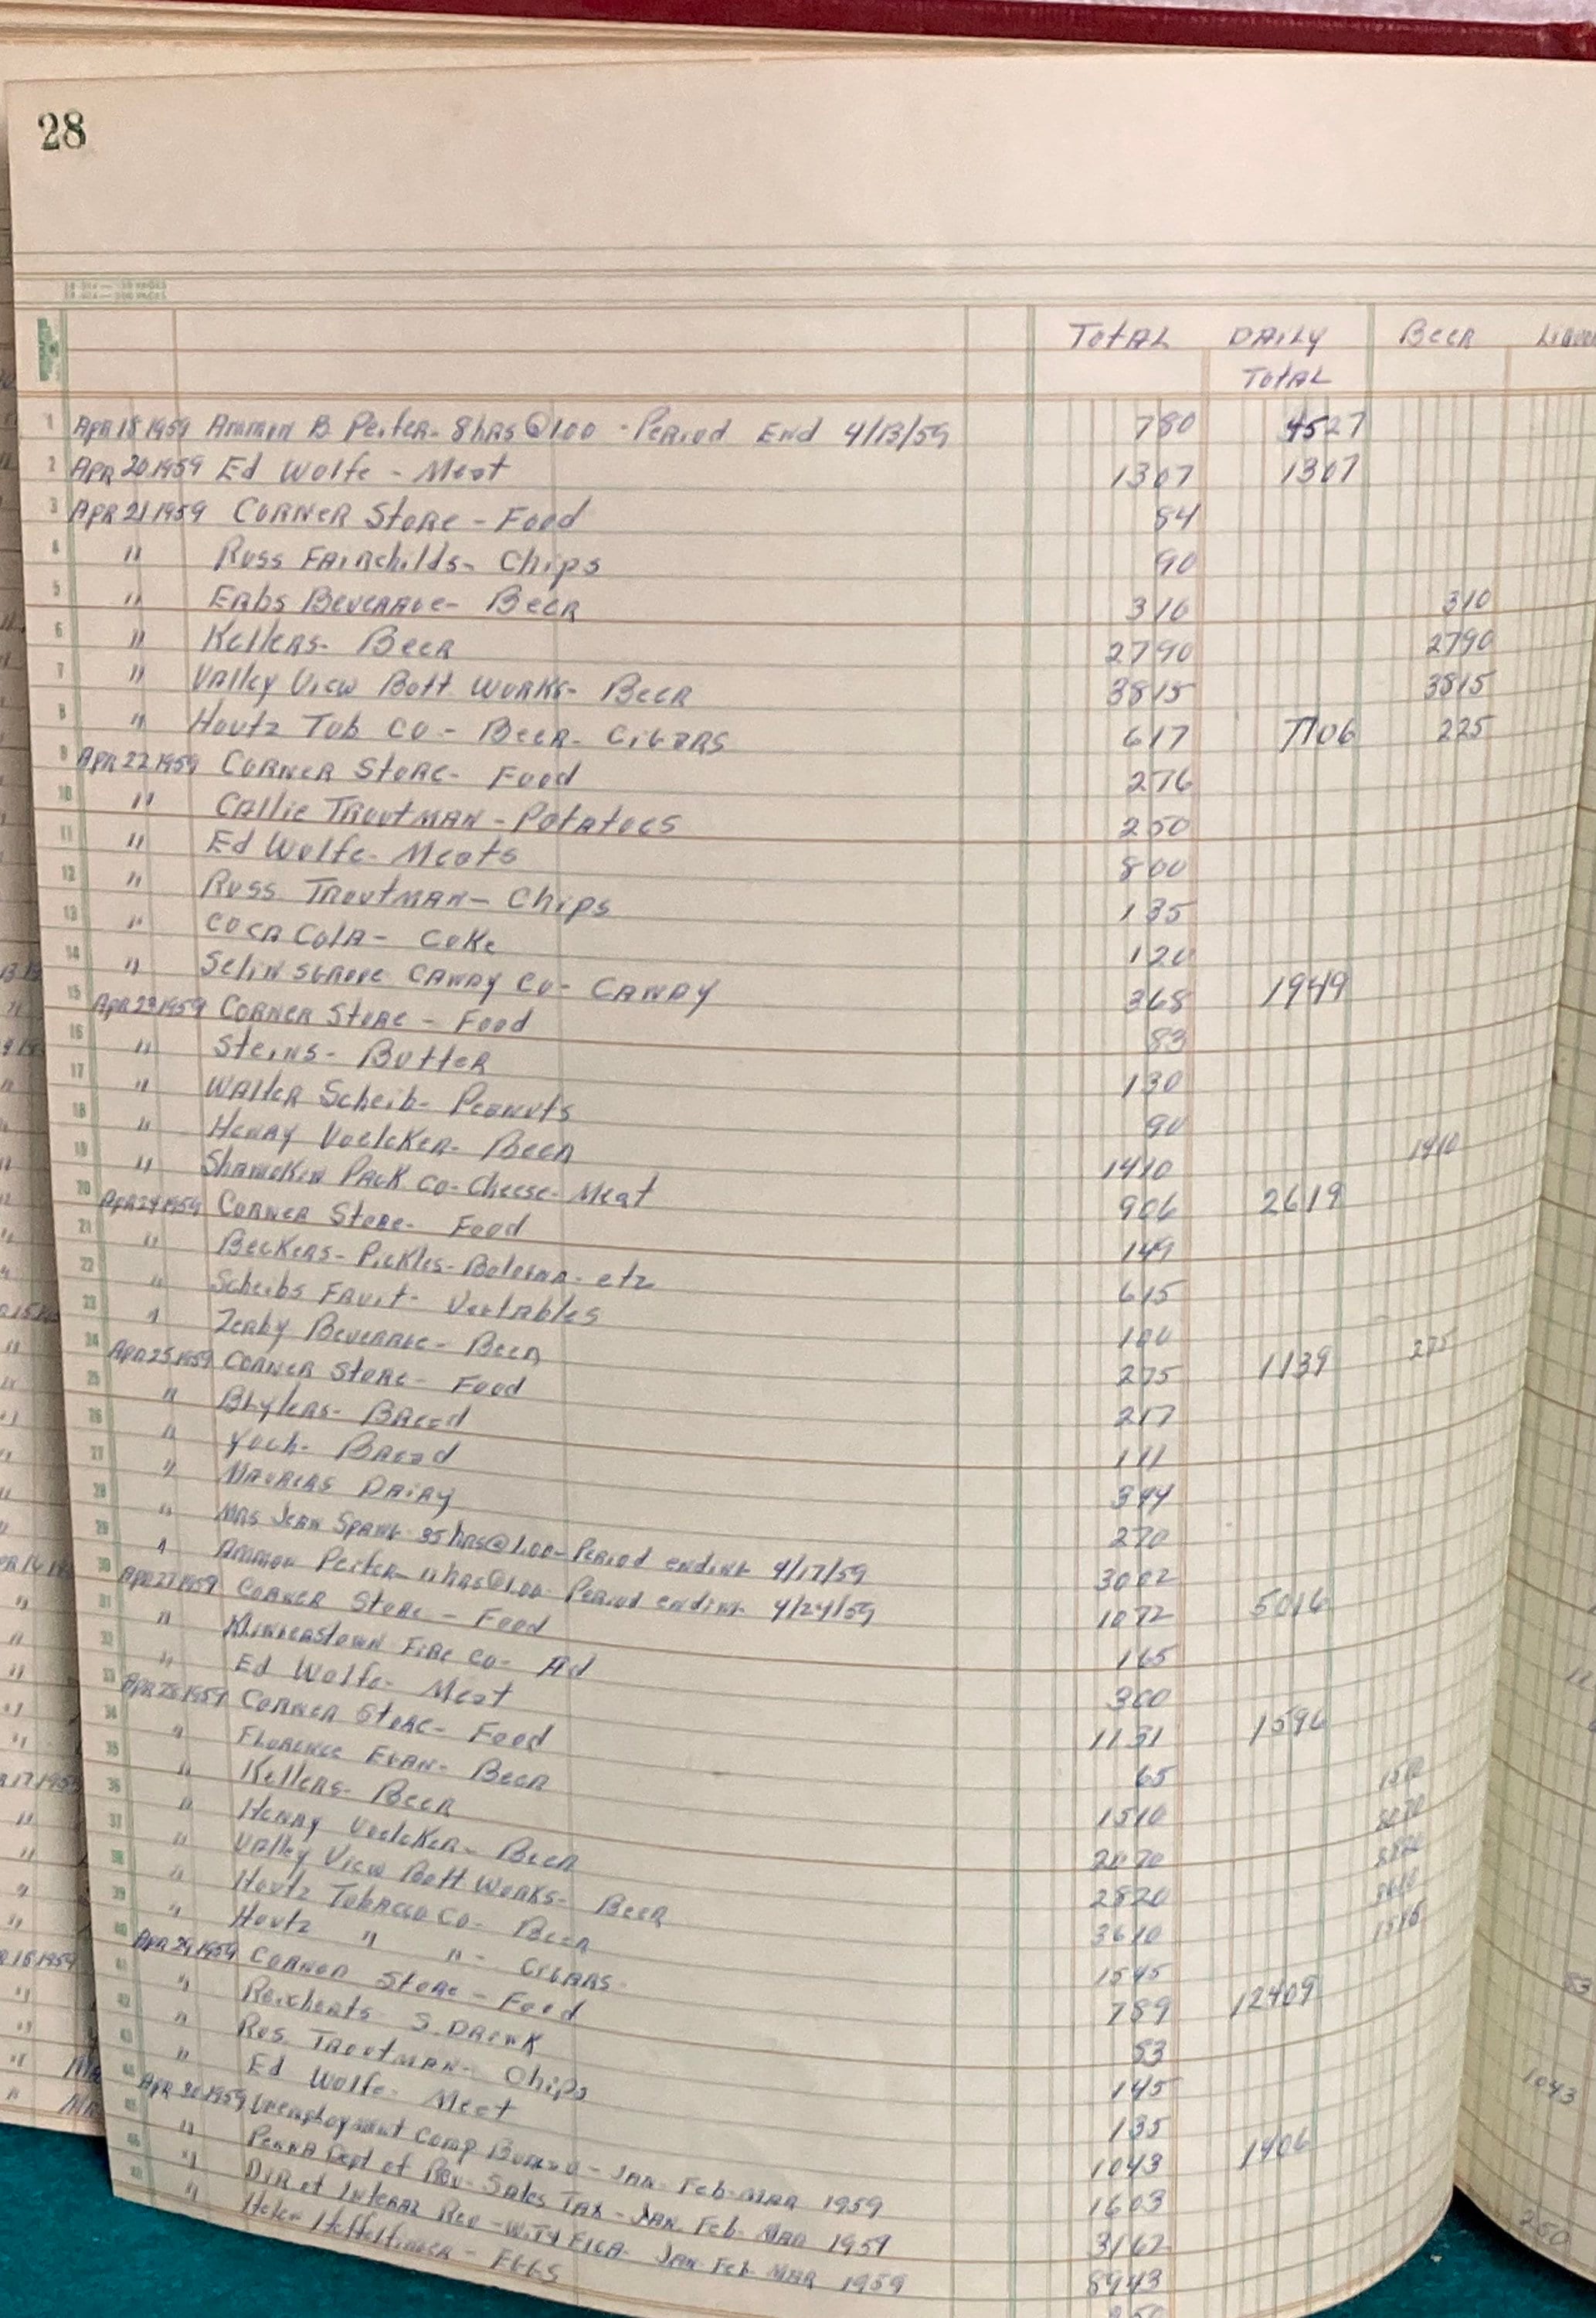 28
TOTAL DAILY BEER
TOTAL
1 APR 18 1959 Ammon B. Peifer- 8 hrs @ 1.00 - Period End 4/13/59 780 4527
2 APR 20 1959 Ed Wolfe - Meat 1307 1307
3 APR 21 1959 CORNER STORE - Food 84
4 " Russ FAIRchilds- Chips 90
5 " ERbs BEVERAGE- BEER 310 310
6 " KELLERS- BEER 2790 2790
7 " VAlley View Bott. WORKS- BEER 3815 3815
8 " Houtz Tob CO - BEER- CIGARS 617 7706 225
9 APR 22 1959 CORNER STORE- Food 276
10 " CALLIE TROUTMAN - POTATOES 250
11 " Ed Wolfe- Meats 800
12 " Russ TROUTMAN- Chips 135
13 " COCA COLA- COKE 120
14 " SELINSGROVE CANDY CO- CANDY 368 1949
15 APR 23 1959 CORNER STORE - Food 83
16 " STEINS- BUTTER 130
17 " WALTER Scheib- Peanuts 90
18 " HENRY VOELCKER- BEER 1410 1410
19 " SHAMOKIN PACK CO- Cheese- Meat 906 2619
20 APR 24 1959 CORNER STORE- Food 149
21 " BECKERS- PICKLES- Bologna- etc 615
22 " Scheibs FRUIT- Vegtables 100
23 " ZERBY BEVERAGE- BEER 275 1139 275
24 APR 25 1959 CORNER STORE- Food 217
25 " - BREAD 111
26 " - BREAD 344
27 " DAIRY 270
28 " MRS JEAN 35 hrs @ 1.00- PERIOD ENDING 4/17/59 3002
29 " AMMON Peifer- 11 hrs @ 1.00- PERIOD ENDING 4/24/59 1072 5016
30 APR 27 1959 CORNER STORE - Food 165
31 " KLINGERSTOWN FIRE CO- Ad 300
32 " Ed Wolfe- Meat 1131 1596
33 APR 28 1959 CORNER STORE- Food 65
34 " FLORENCE - BEER 1510 1510
35 " KELLERS- BEER 2070 2070
36 " HENRY VOELCKER- BEER 2820 2820
37 " VAlley View Bott WORKS- BEER 3610 3610
38 " Houtz TOBACCO CO- BEER 1545 1545
39 " Houtz " " - CIGARS- 789 12409
40 APR 29 1959 CORNER STORE - Food 83
41 " Reicherts- S. DRINK 145
42 " Rus. TROUTMAN- Chips 135
43 " Ed Wolfe- Meat 1043 1406
44 APR 30 1959 Unemployment Comp Bureau - JAN- Feb- MAR 1959 1603
45 " PENNA Dept of Rev- Sales TAX - JAN. Feb- MAR 1959 3162
46 " DIR of Internal Rev - FICA- JAN Feb MAR 1959 8943
" Helen Heffelfinger - EGGS
1043
250